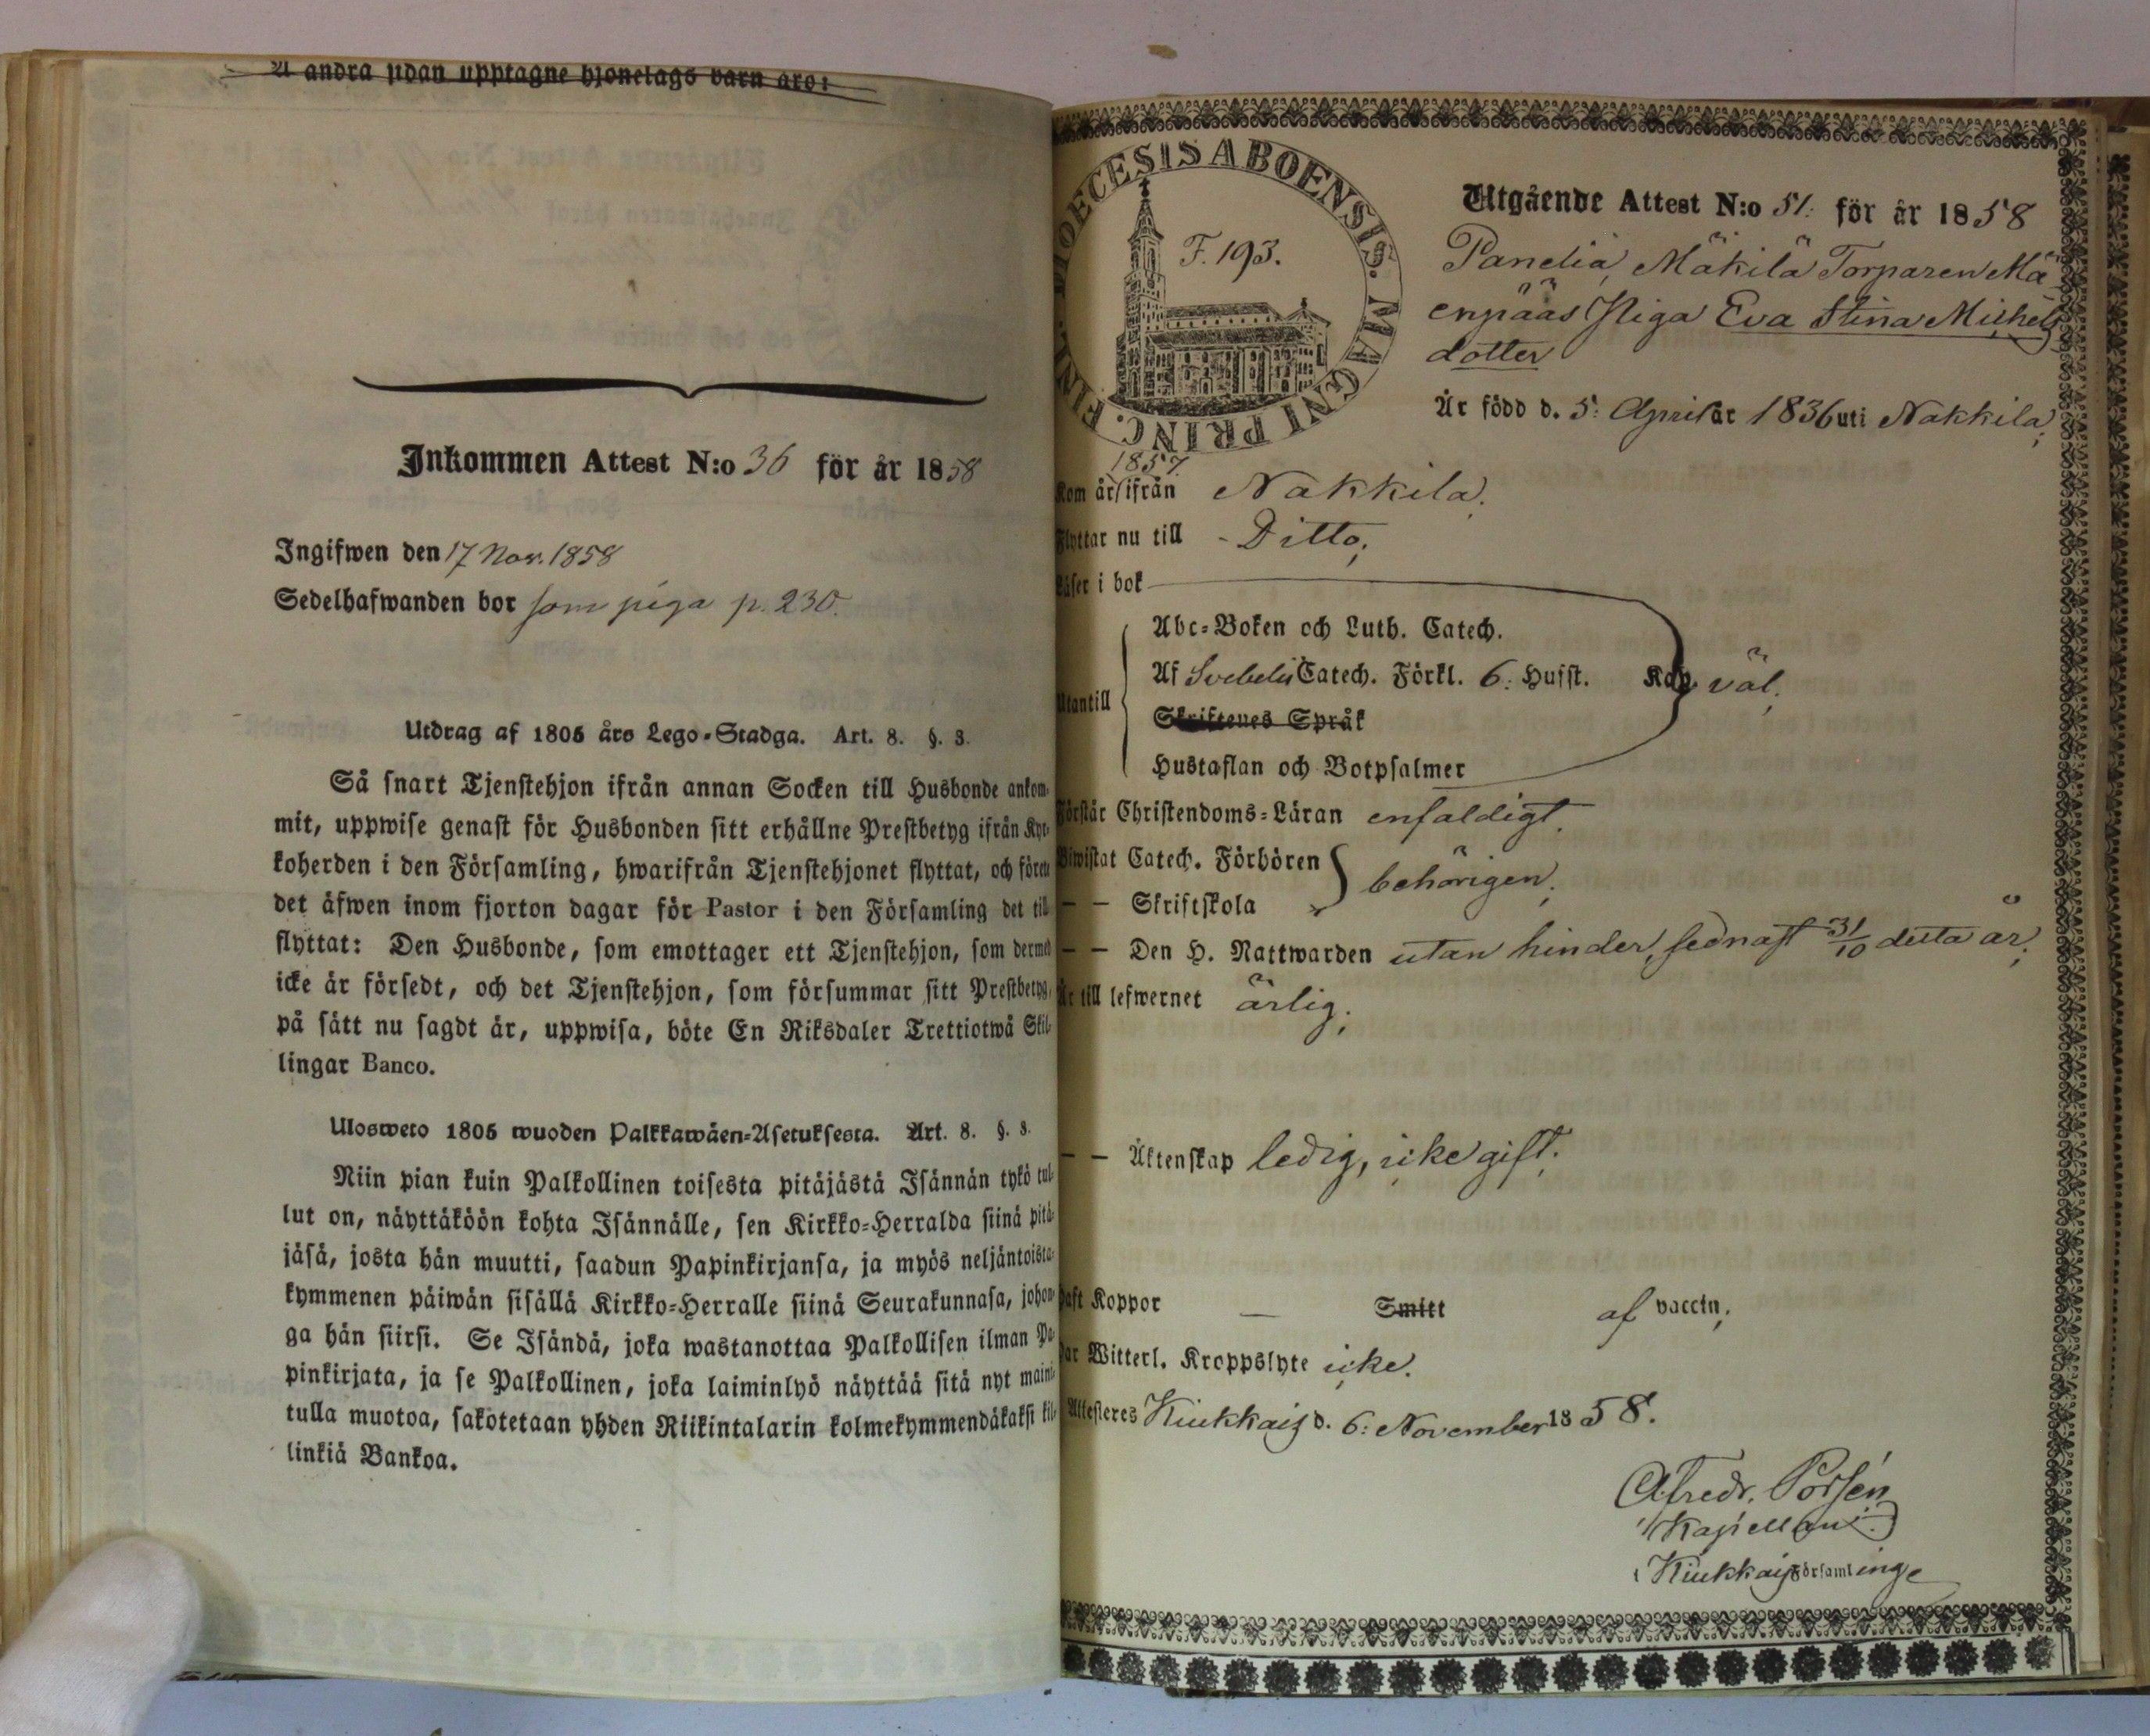 A andra sidan upptagne hjonelags barn äro:
Inkommen Attest N:o 36 för år 1858
Ingifwen den 17 Nov. 1858
Sedelhafwanden bor som piga p. 230.
Utdrag af 1805 års Lego-Stadga. Art. 8. §. 3.
Så snart Tjenstehjon ifrån annan Socken till Husbonde ankom-
mit, uppwise genast för Husbonden sitt erhållne Prestbetyg ifrån Kyr-
koherden i den Församling, hwarifrån Tjenstehjonet flyttat, och förete
det äfwen inom fjorton dagar för Pastor i den Församling det till
flyttat: Den Husbonde, som emottager ett Tjenstehjon, som dermed
icke är försedt, och det Tjenstehjon, som försummar sitt Prestbetyg,
på sätt nu sagdt är, uppwisa, böte En Riksdaler Trettiotwå Skil-
lingar Banco.
Ulosweto 1805 wuoden Palkkawäen-Asetuksesta. Art. 8. §. 3.
Niin pian kuin Palkollinen toisesta pitäjästä Isännän tykö tul-
lut on, näyttäköön kohta Isännälle, sen Kirkko-Herralda siinä pitä-
jäsä, josta hän muutti, saadun Papinkirjansa, ja myös neljäntoista-
kymmenen päiwän sisällä Kirkko-Herralle siinä Seurakunnasa, johon-
ga hän siirsi. Se Isändä, joka wastanottaa Palkollisen ilman Pa-
pinkirjata, ja se Palkollinen, joka laiminlyö näyttää sitä nyt maini-
tulla muotoa, sakotetaan yhden Riikintalarin kolmekymmendäkaksi kil-
linkiä Bankoa.
DIOECESIS ABOENSIS. MAGNI PRINC. FINL.
F. 193.
Utgående Attest N:o 51. för år 1858
Panelia, Mäkilä Torparen Mä
enpääs Piga Eva Stina Michels
dotter
Är född d. 5: April år 1836 uti Nakkila;
1857.
Kom år ifrån Nakkila;
Flyttar nu till - Ditto;
Läser i bok
Abc-Boken och Luth. Catech.
Utantill Af Svebelii Catech. Förkl. 6: Hufst. Kap. väl;
Skriftenes Språk
Hustaflan och Botpsalmer
Förstår Christendoms-Läran enfaldigt.
Biwistat Catech. Förhören
behörigen;
— — Skriftskola
— — Den H. Nattwarden utan hinder, sednast 31/10 detta år;
Är till lefwernet ärlig;
— — Äktenskap ledig, icke gift;
Haft Koppor — Smitt af vaccin;
Har Witterl. Kroppslyte icke.
Attesteres Kiukkais d. 6: November 1858.
Afredr. Porsén
Kapellan.
Kiukkais Församlinge